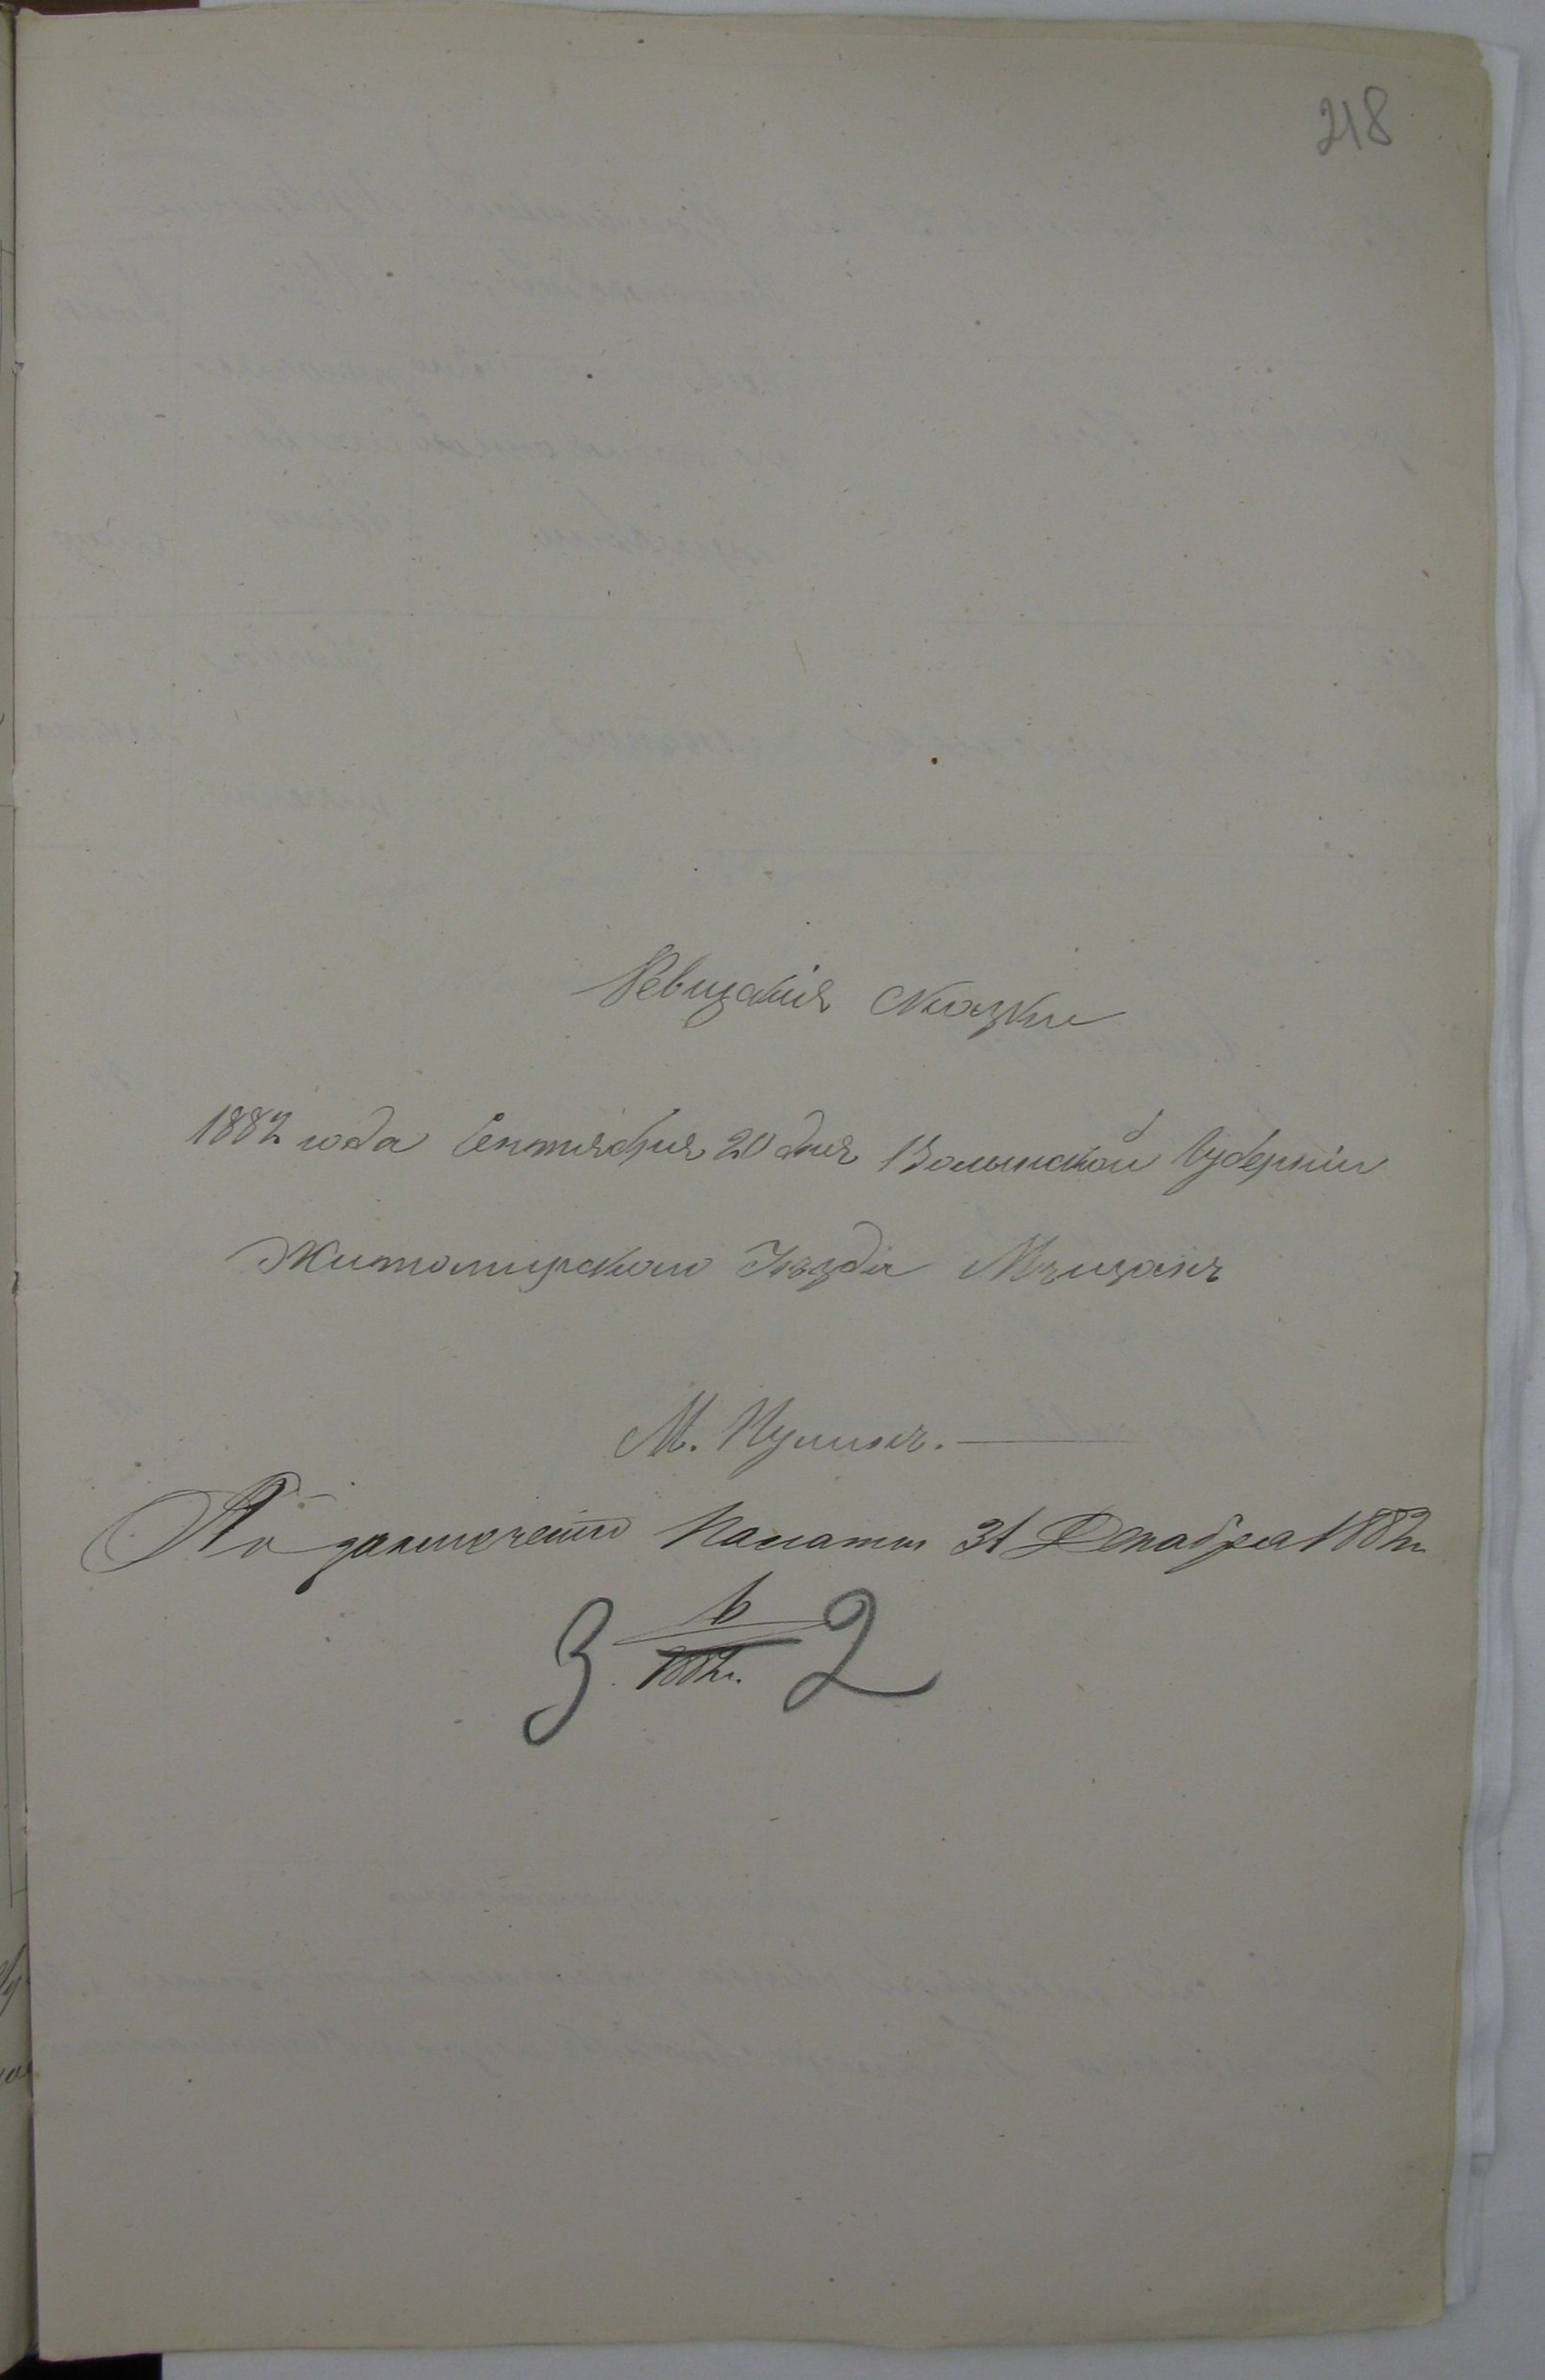 218
Ревизкія Сказки
1882 года Сентября 20 дня Волынской Губерніи
Житомирскаго Уѣзда Мѣщанъ
М. Пулинъ.
По заключенію Палаты 31 Декабря 1882 г.
3 6/1882 г. 2